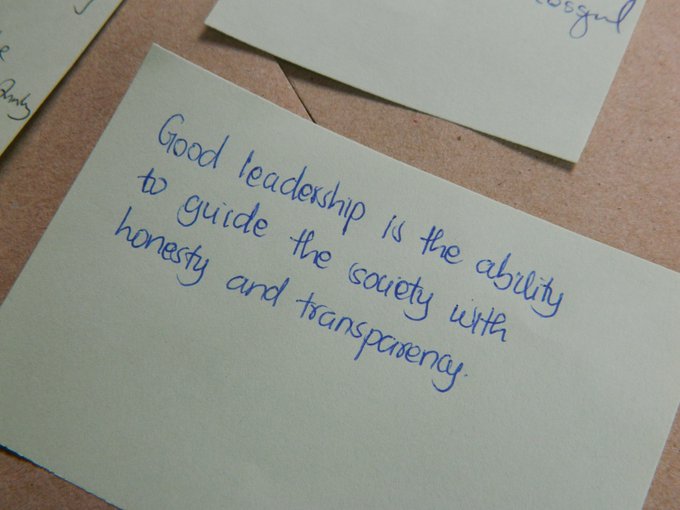 Good leadership is the ability
to guide the society with
honesty and transparency.